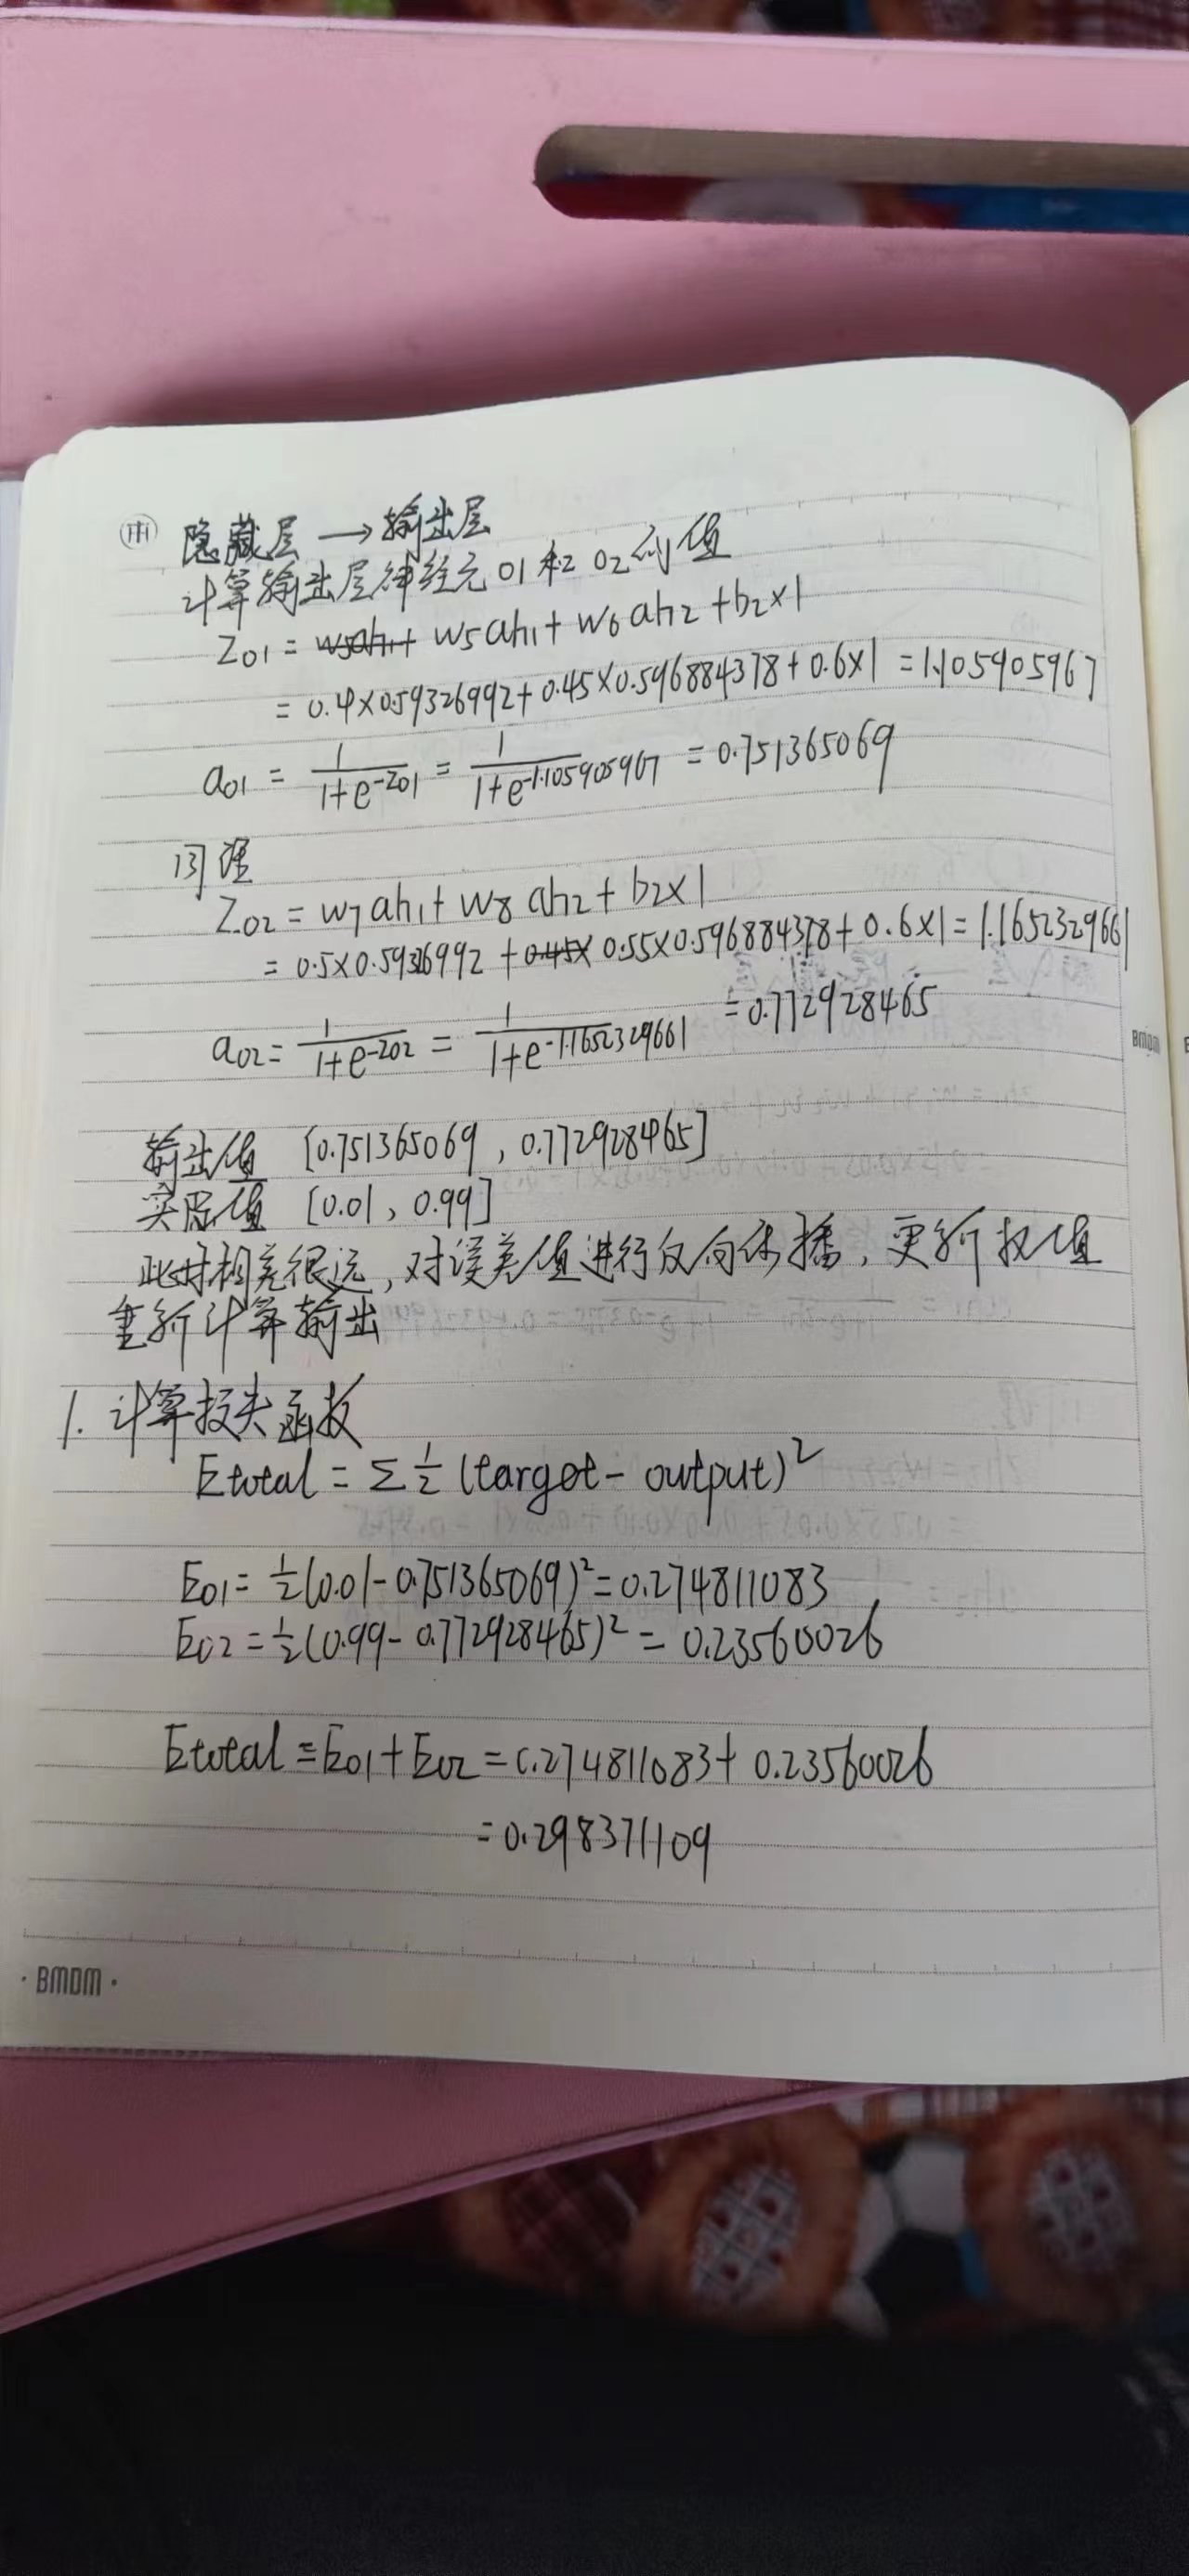 隐藏层 → 输出层
计算输出层神经元 O1 和 O2 的值
Zo1 = w5ah1+ w5ah1 + w6ah2 + b2×1
= 0.4×0.59326992 + 0.45×0.596884378 + 0.6×1 = 1.105905967
ao1 = 1/(1+e^-Zo1) = 1/(1+e^-1.105905967) = 0.751365069
同理
Zo2 = w7ah1 + w8ah2 + b2×1
= 0.5×0.59326992 + 0.45× 0.55×0.596884378 + 0.6×1 = 1.1652329661
ao2 = 1/(1+e^-Zo2) = 1/(1+e^-1.1652329661) = 0.772928465
输出值 [0.751365069, 0.772928465]
实际值 [0.01, 0.99]
此时相差很远, 对误差值进行反向传播, 更新权值
重新计算输出
1. 计算损失函数
Etotal = Σ ½ (target - output)²
Eo1 = ½(0.01 - 0.751365069)² = 0.274811083
Eo2 = ½(0.99 - 0.772928465)² = 0.23560026
Etotal = Eo1 + Eo2 = 0.274811083 + 0.23560026
= 0.298371109
· BMDM ·